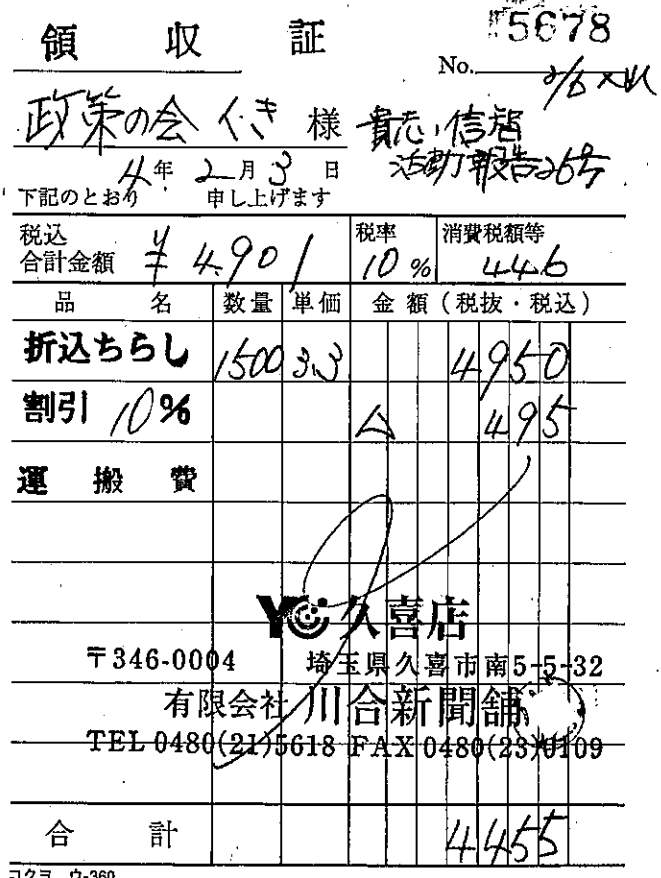 領収証
5678
No. 2/6
政策の会 くき 様 貴志信智
活動報告26号
4年 2月 3日
下記のとおり 申し上げます
税込合計金額 ¥4,901 税率 10% 消費税額等 446
品名 数量 単価 金額(税抜・税込)
折込ちらし 1500 3.3 4950
割引 10% △ 495
運搬費
YC 久喜店
〒346-0004 埼玉県久喜市南5-5-32
有限会社 川合新聞舗
TEL 0480(21)5618 FAX 0480(23)0109
合計 4455
コクヨ ウ-360